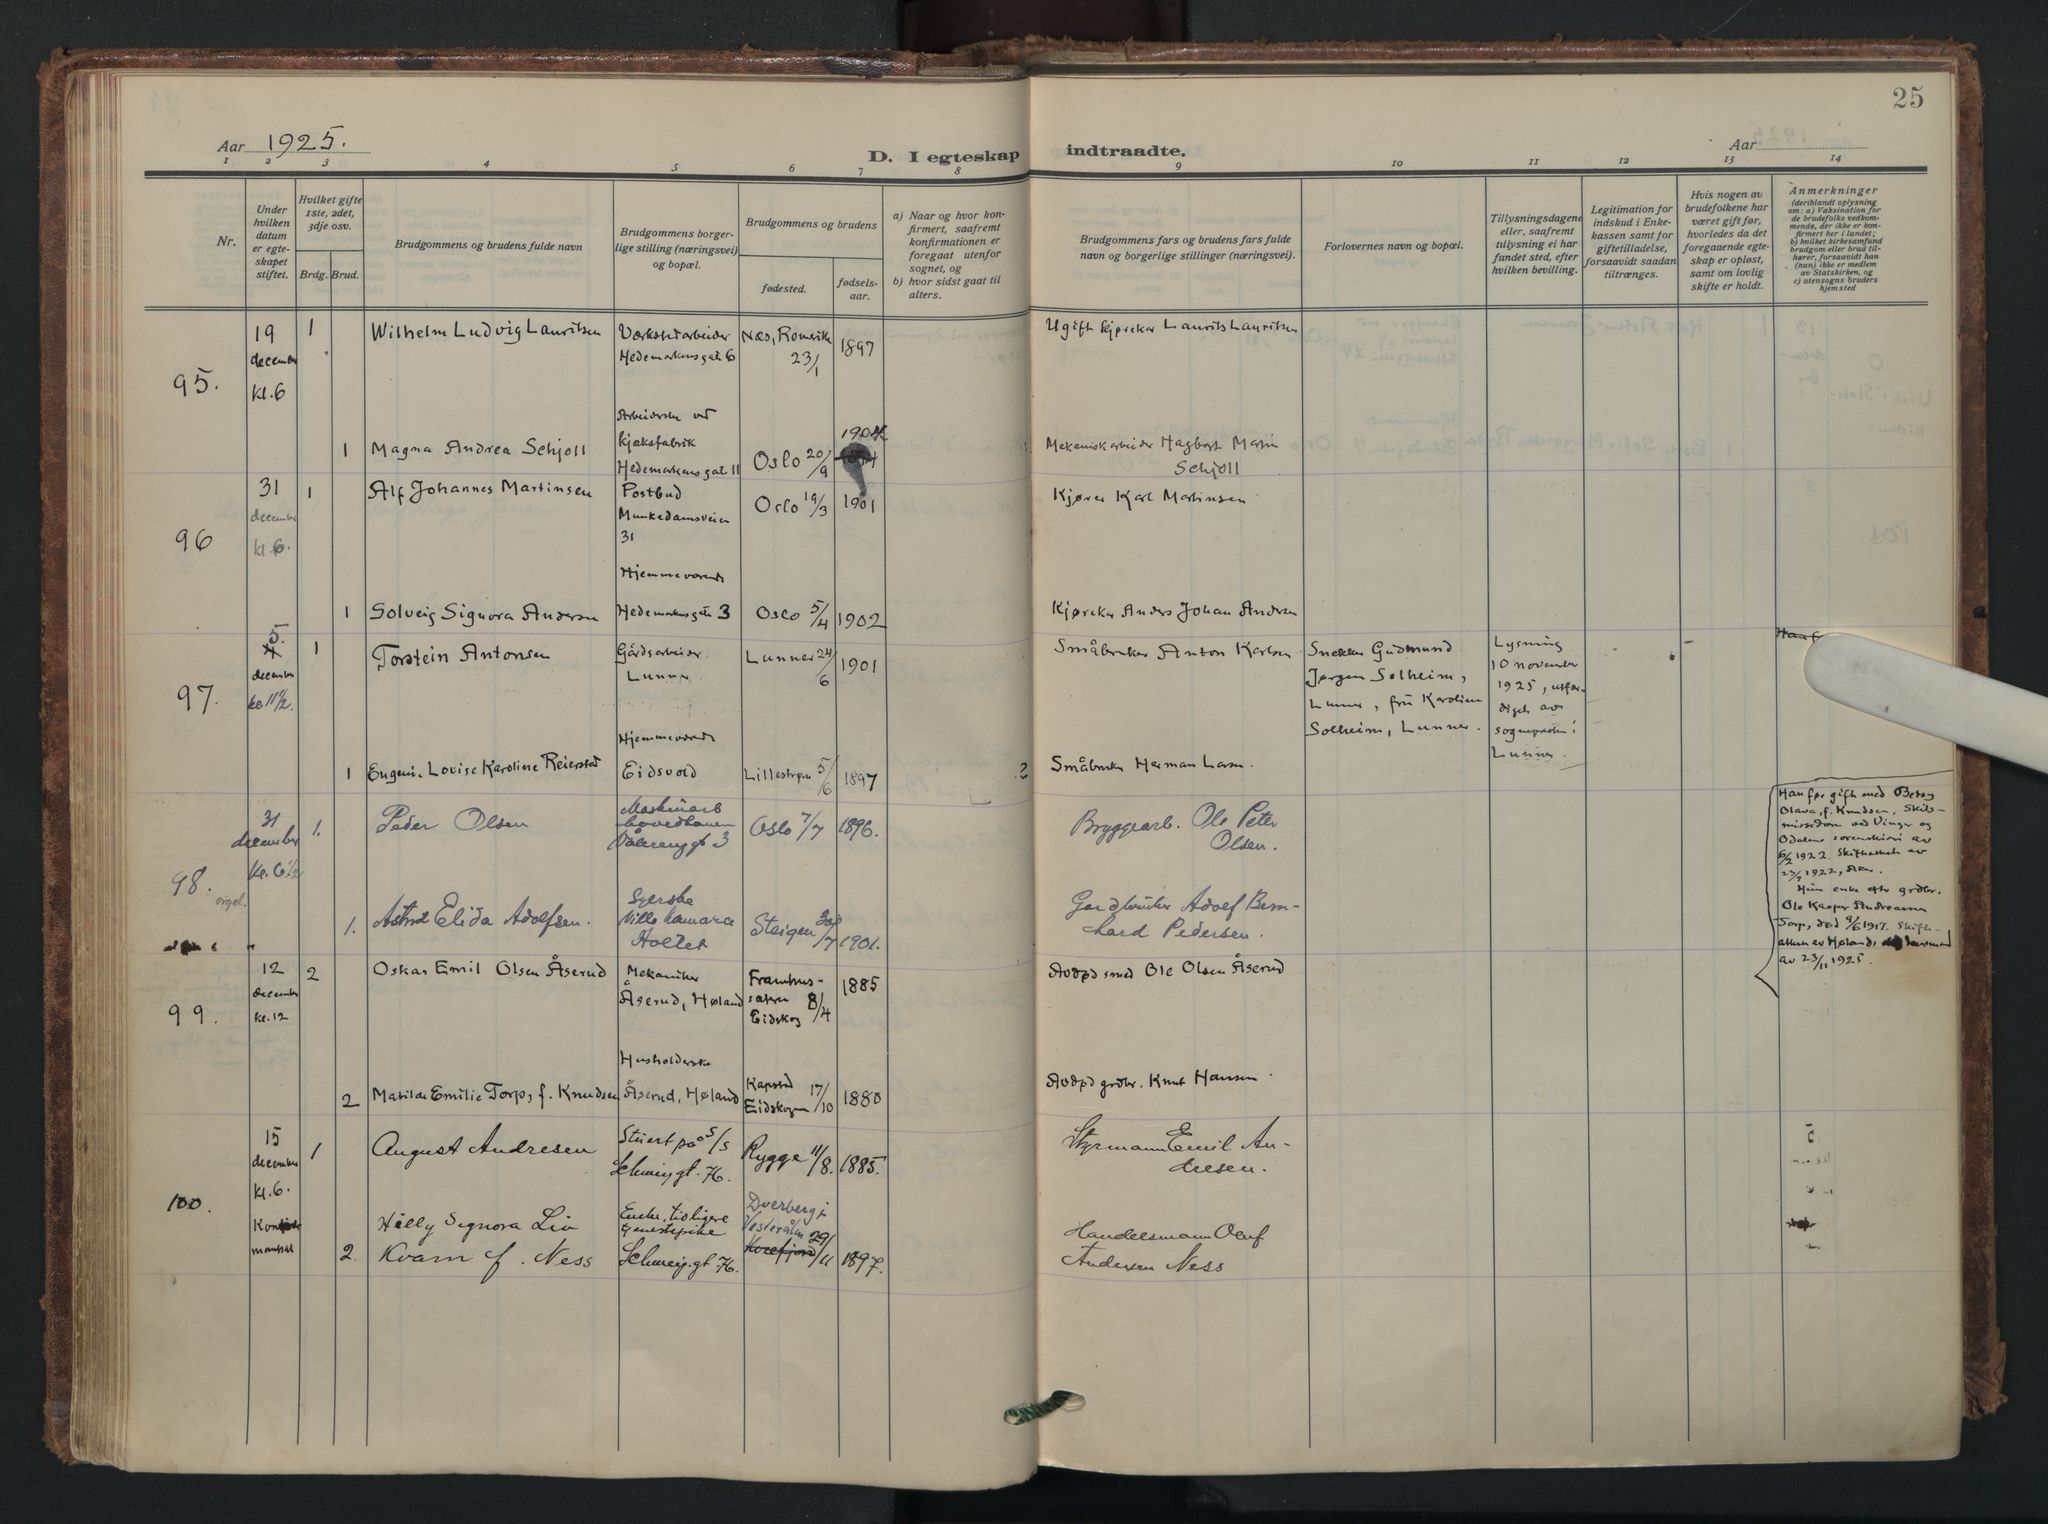 25
Aar 1925.
D. I egteskap indtraadte.
Aar
1 2 3 4 5 6 7 8 9 10 11 12 13 14
Nr.
Under hvilken datum er egteskapet stiftet.
Hvilket gifte 1ste, 2det, 3dje osv.
Brdg. Brud.
Brudgommens og brudens fulde navn
Brudgommens borgerlige stilling (næringsvei) og bopæl.
Brudgommens og brudens
fødested.
fødselsaar.
a) Naar og hvor konfirmert, saafremt konfirmationen er foregaat utenfor sognet, og
b) hvor sidst gaat til alters.
Brudgommens fars og brudens fars fulde navn og borgerlige stillinger (næringsvei).
Forlovernes navn og bopæl.
Tillysningsdagene eller, saafremt tillysning ei har fundet sted, efter hvilken bevilling.
Legitimation for indskud i Enkekassen samt for giftetilladelse, forsaavidt saadan tiltrænges.
Hvis nogen av brudefolkene har været gift før, hvorledes da det foregaaende egteskap er opløst, samt om lovlig skifte er holdt.
Anmerkninger
(deriblandt oplysning om: a) Vaksination for de brudefolks vedkommende, der ikke er konfirmert her i landet; b) hvilket kirkesamfund brudgom eller brud tilhører, forsaavidt han (hun) ikke er medlem av Statskirken, og c) utensogns bruders hjemsted
95.
19 december kl. 6
1
Wilhelm Ludvig Lauritsen
Værkstedarbeider
Hedemarkensgate 6
Næs, Romerike 23/1
1897
Ugift kjørekar Laurits Lauritsen
1
Magna Andrea Schjoll
Arbeiderske ved kjæksfabrik
Hedemarkensgate 11
Oslo 20/9
1904
Mekaniskarbeider Hagbart Martin
Schjoll
96
31 december kl. 6.
1
Alf Johannes Martinsen
Postbud
Munkedamsveien
31
Oslo 19/3
1901
Kjører Karl Martinsen
1
Solveig Signora Andersen
Hjemmeværende
Hedemarkensgate 3
Oslo 5/4
1902
Kjørekar Anders Johan Andersen
97.
5. december kl. 11 1/2.
1
Torstein Antonsen
Gårdsarbeider
Lunner
Lunner 24/6
1901
Småbruker Anton Karlsen
Snekker Gudmund
Jørgen Solheim,
Lunner, fru Karoline
Solheim, Lunner.
Lysning
10 november
1925, utfær-
diget av
sognepresten i
Lunner.
1
Eugenie Lovise Karoline Reierstad
Hjemmeværende
Eidsvold
Lillestrøm 5/6
1897
2
Småbruker Herman Larsen
98.
orgel.
31 december kl. 6 1/2
1.
Peder Olsen
Maskinarb.
hovedbanen
Vålerenggt 3
Oslo 7/7
1896.
Bryggearb. Ole Peter
Olsen.
1.
Astrid Elida Adolfsen.
Syerske
Villa Ramara
Holtet
Steigen 30/7
1901.
Gardbruker Adolf Bern-
hard Pedersen.
99.
12 december kl. 12
2
Oskar Emil Olsen Åserud
Mekaniker
Åserud, Høland
8/4
Eidskog
1885
Avdød smed Ole Olsen Åserud
Han før gift med Betsy
Olava, f. Knudsen, Skils-
missedom ved Vinger og
Odalens sorenskriveri av
6/2 1922. Skifteattest av
23/9 1922, Aker.
Hun enke efter grdbr.
Ole Kasper Andreassen
Torp, død 9/6 1917. Skifte-
attest av Høland lensmand
av 23/11 1925.
2
Matilde Emilie Torp, f. Knudsen
Husholderske
Åserud, Høland
Kapstad
Eidskogen 17/10
1880
Avdød grdbr. Knut Hansen
100.
15 december kl. 6.
1
August Andresen
Stuert på S/S
Schweigt. 76.
Rygge 11/8.
1885.
Styrmann Emil An-
dresen.
2.
Hilly Signora Liv
Kvam f. Ness
Enke, tidligere
tjenestepike
Schweig.gt 76.
Dverberg i
Vesterålen 29/11
Kvæfjord
1897.
Handelsmann Oluf
Andersen Ness